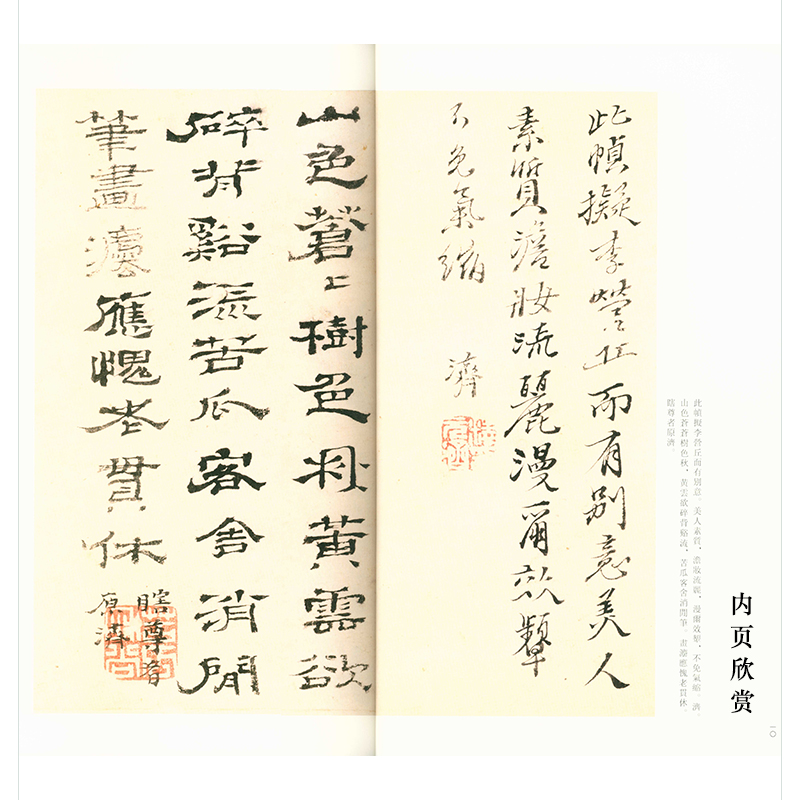 此幀擬李營丘而有別意美人
素質澹妝流麗漫爾效顰
不免氣縮
濟
山色蒼〻樹色秋黃雲欲
碎背谿流苦瓜客舍消閒
筆畫灋應愧老貫休
瞎尊者
原濟
此幀擬李營丘而有別意。美人素質，澹妝流麗，漫爾效顰，不免氣縮。濟。
山色蒼蒼樹色秋，黃雲欲碎背谿流。苦瓜客舍消閒筆，畫灋應愧老貫休。
瞎尊者原濟。
内页欣赏
10